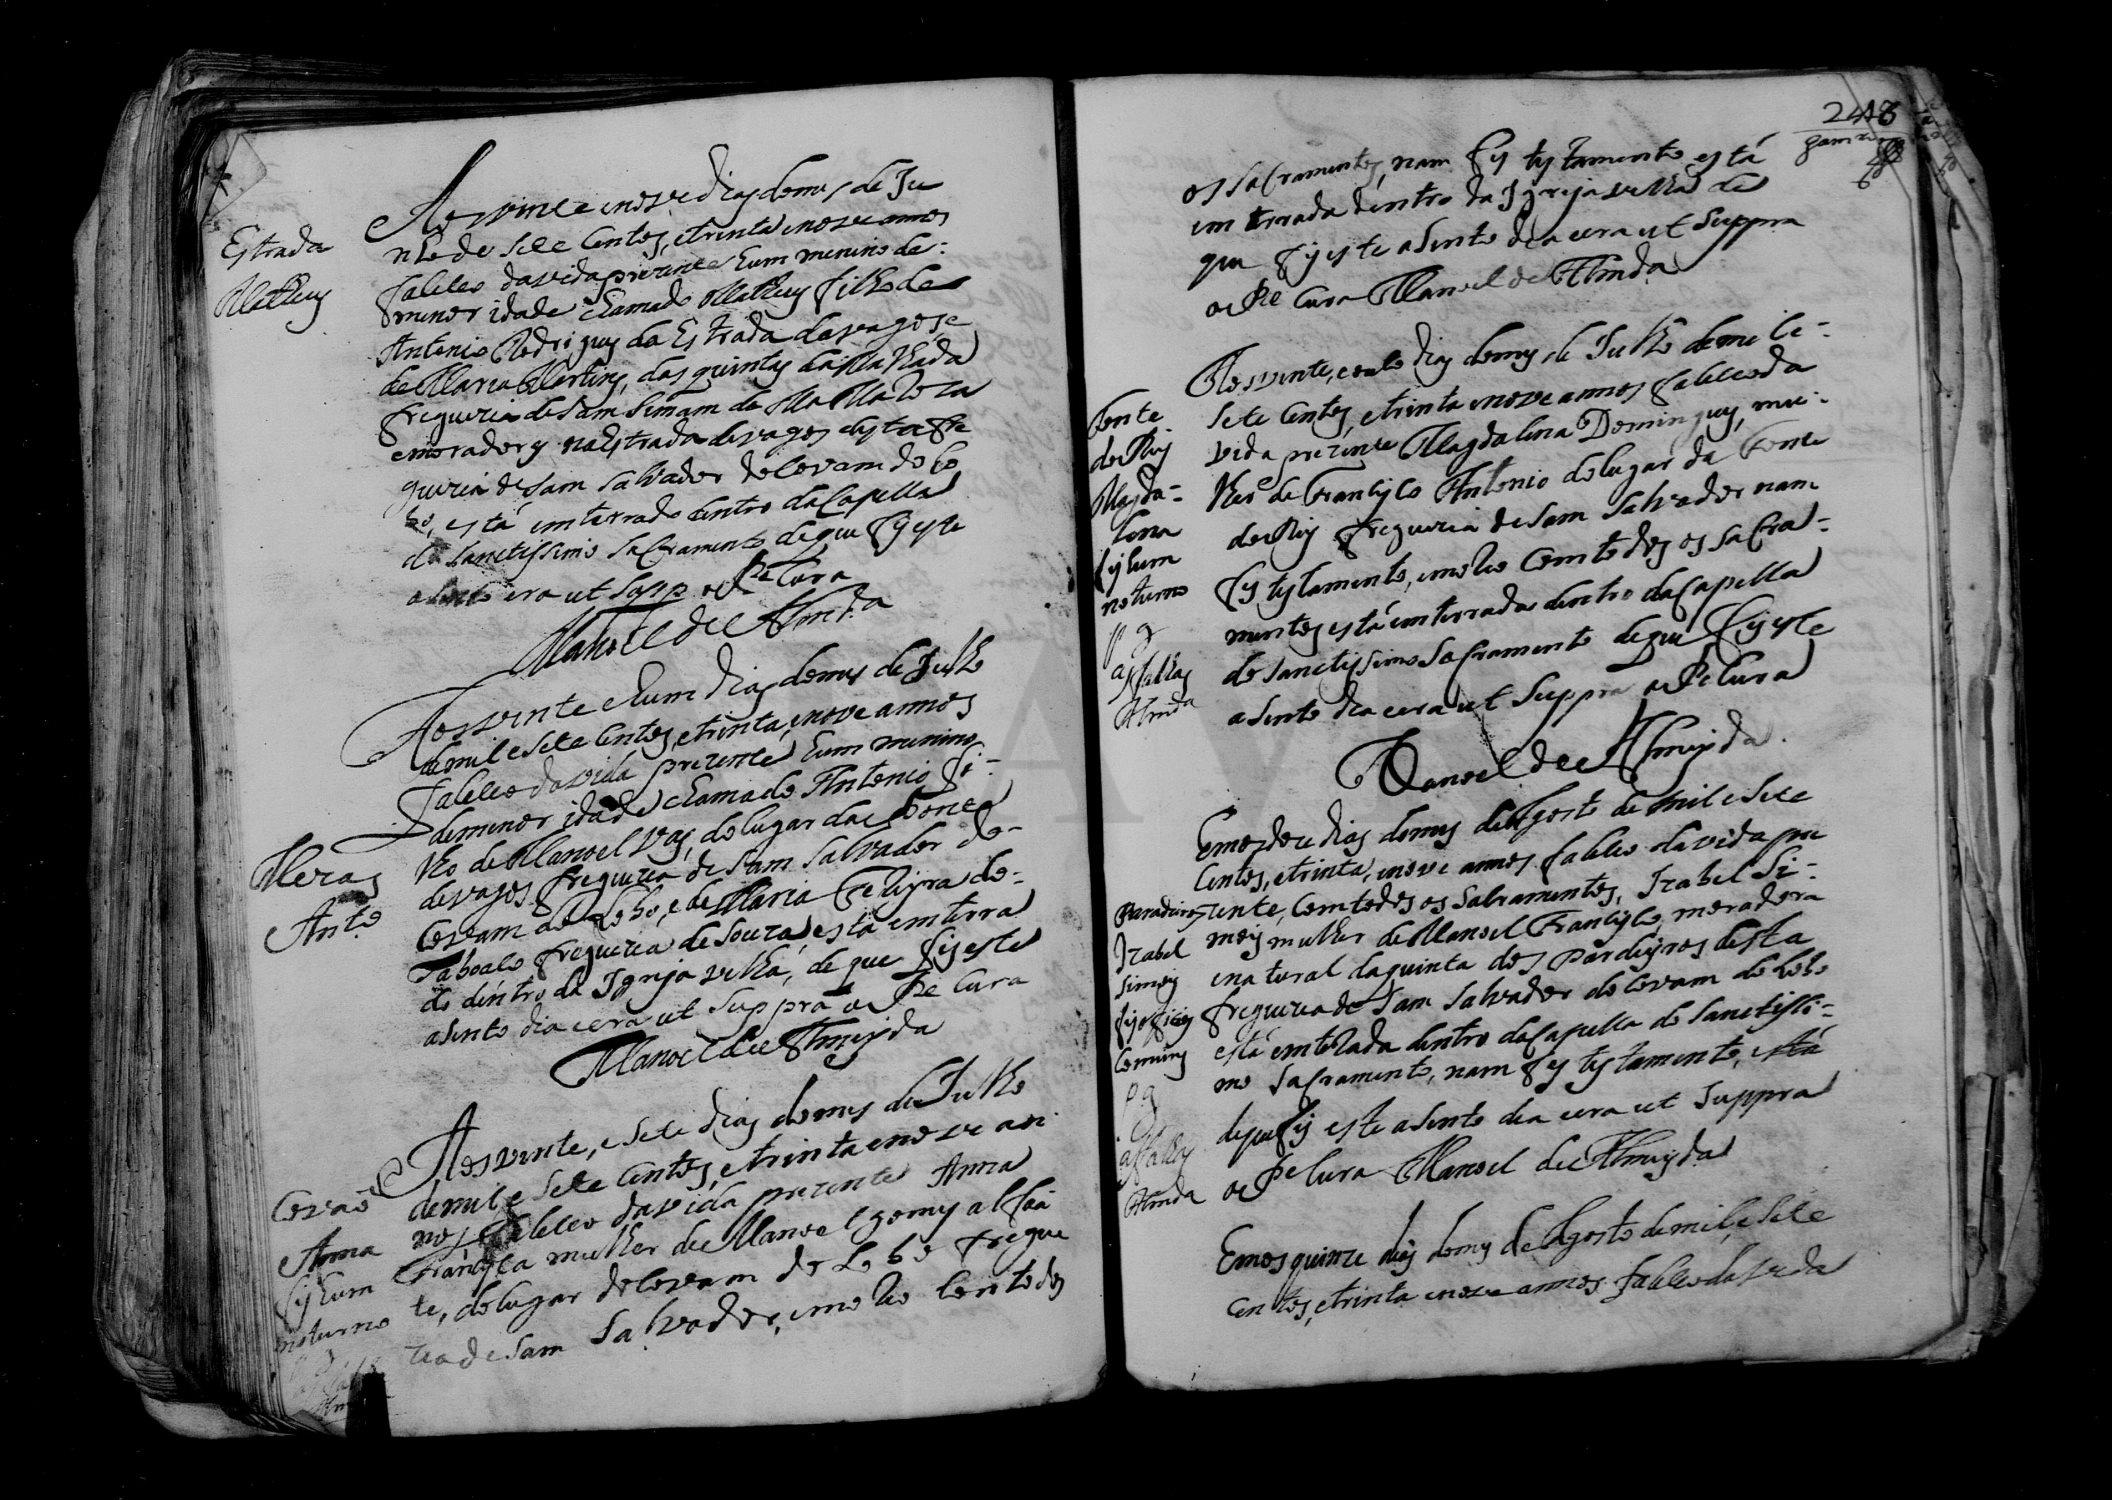 Estrada
Matheus
Aos vinte e nove dias do mes de Ju
nho de sete centos, e trinta e nove annos
faleceo da vida prezente hum menino de
menor idade chamado Matheus filho de
Antonio Rodrigues da Estrada de vagos, e
de Maria Martins, das quintas da
freguezia de Sam Simam de
e moradores na estrada de vagos desta fre
guezia de Sam Salvador do Covam do Lo
bo, está emterrado dentro da Capella
do Sanctissimo Sacramento de que fis este
asento era ut Supp o Pe Cura
Manoel de Almda
Aos vinte e hum dias do mes de Julho
de mil e sete centos, e trinta, e nove annos
faleceo da vida prezente hum menino
de menor idade chamado Antonio fi-
lho de Manoel Vas, do lugar da fonte
de vagos freguezia de Sam Salvador do
Covam do Lobo, e de Maria
Taboaço freguezia de Souza, está emterra
do dentro da Igreja velha, de que fis este
asento dia e era ut Suppra o Pe Cura
Manoel de Almeyda
Anto
Aos vinte, e sete dias do mes de Julho
de mil e sete centos, e trinta e nove an
nos faleceo da vida prezente Anna
Francisca mulher de Manoel gomes alfaá
te, do lugar do Covam do Lobo fregue
zia de Sam Salvador, morreo com todos
Covaõ
Anna
fis hum
noturno
2448
os Sacramentos, nam fes testamento está
emterrada dentro da Igreja velha de
que fis este asento dia e era ut Suppra
o Pe Cura Manoel de Almda
Aos vinte, e outo dias do mes de Julho de mil e
sete centos, e trinta e nove annos faleceo da
vida prezente Magdalena Domingues, mu-
lher de Francisco Antonio do lugar da fonte
do Rio freguezia de Sam Salvador nam
fes testamento, morreo com todos os Sacra-
mentos está emterrada dentro da Capella
do Sanctissimo Sacramento de que fis este
asento dia e era ut Suppra o Pe Cura
Manoel de Almeyda
fonte
do Rio
Magda-
lena
fis hum
noturno
pg
Almda
Em os doze dias do mes de Agosto de mil e sete
centos, e trinta, e nove annos faleceo da vida pre
zente, com todos os Sacramentos, Izabel Si-
mois mulher de Manoel Francisco, moradora
e natural da quinta dos Pardieyros desta
freguezia de Sam Salvador do Covam do Lobo
está emterrada dentro da Capella do Sanctissi-
mo Sacramento, nam fes testamento, está
de que fis este asento dia e era ut Suppra
o Pe Cura Manoel de Almeyda
Izabel
Simois
fis officios
comuns
pg
Almda
Em os quinze dias do mes de Agosto de mil e sete
centos, e trinta e nove annos faleceo da vida